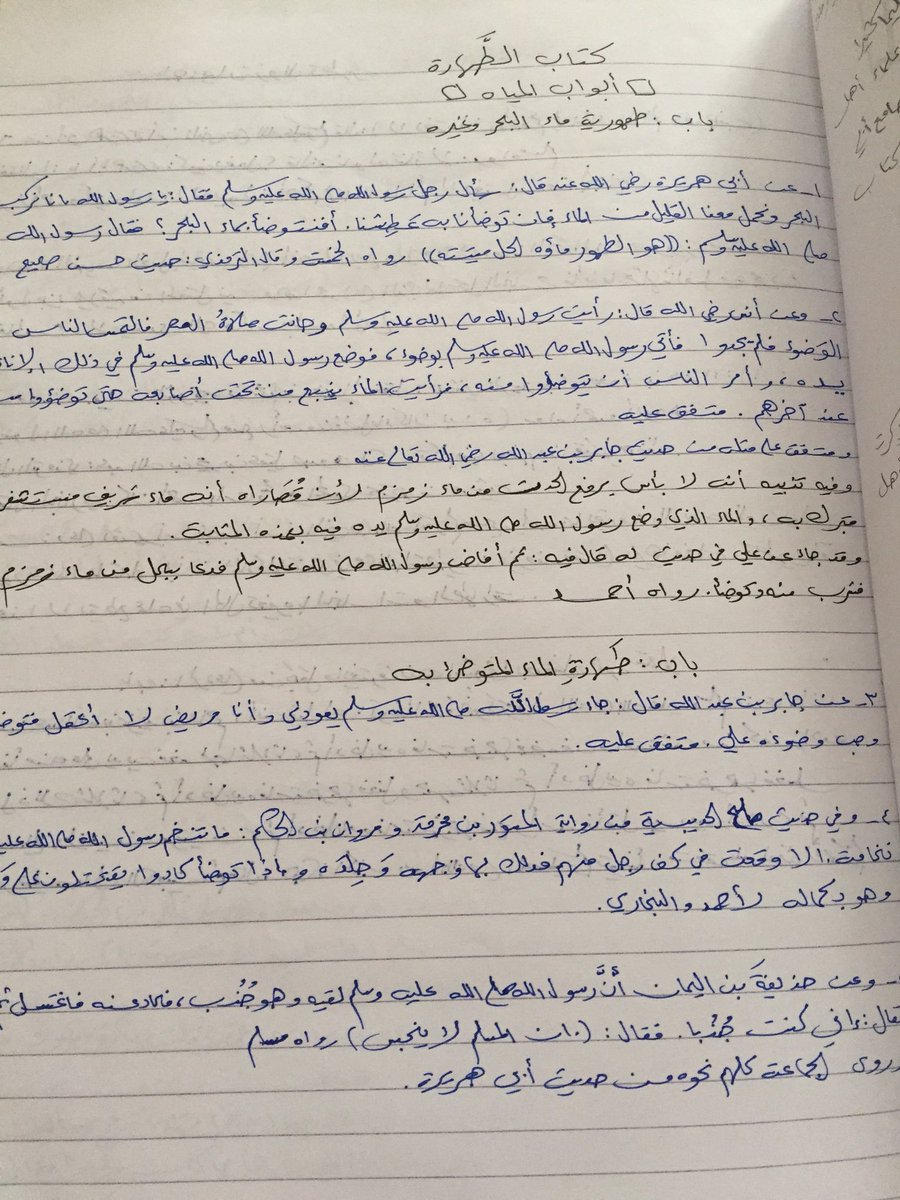 كتاب الطَّهارة
أبواب المياه
باب : طهورية ماء البحر وغيره
١- عن أبي هريرة رضي الله عنه قال : سأل رجل رسول الله صلى الله عليه وسلم فقال : يا رسول الله إنا نركب
البحر ونحمل معنا القليل من الماء فإن توضأنا به عَطِشنا . أفنتوضأ بماء البحر ؟ فقال رسول الله
صلى الله عليه وسلم : ((هو الطهور ماؤه الحل ميتته)) رواه الخمسة وقال الترمذي : حديث حسن صحيح
٢- وعن أنس رضي الله قال : رأيت رسول الله صلى الله عليه وسلم وحانت صلاةُ العصر فالتمس الناس
الوَضوءَ فلم يجدوا فأُتي رسول الله صلى الله عليه وسلم بوضوء ، فوضع رسول الله صلى الله عليه وسلم في ذلك الإناء
يده ، وأمر الناس أن يتوضؤوا منه ، فرأيت الماء ينبع من تحت أصابعه حتى توضؤوا من
عند آخرهم . متفق عليه
ومتفق على مثله من حديث جابر بن عبد الله رضي الله تعالى عنه
وفيه تنبيه أنه لا بأس برفع الحدث من ماء زمزم لأن قُصَاراه أنه ماء شريف
متبرك به ، والماء الذي وضع رسول الله صلى الله عليه وسلم يده فيه بهذه المثابة .
وقد جاء عن علي في حديث له قال فيه : ثم أفاض رسول الله صلى الله عليه وسلم فدعا بسجل من ماء زمزم
فشرب منه وتوضأ . رواه أحمد
باب : طهارةِ الماء المتوضئ به
٣- عن جابر بن عبد الله قال : جاء رسول الله صلى الله عليه وسلم يعودني وأنا مريض لا أعقل فتوضأ
وصب وضوءه علي . متفق عليه .
٤- وفي حديث صلح الحديبية من رواية المسور بن مخرمة ومروان بن الحكم : ما تنخم رسول الله صلى الله عليه
نخامة إلا وقعت في كف رجل منهم فدلك بها وجهه وَجِلدَه وإذا توضأ كادوا يقتتلون على
وهو بكماله لأحمد والبخاري .
وعن حذيفة بن اليمان أنَّ رسول الله صلى الله عليه وسلم لقيه وهو جُنُب ، فحاد عنه فاغتسل ثم
فقال : إني كنت جُنُبا . فقال : (إن المسلم لا ينجس) رواه مسلم
وروى الجماعة كلهم نحوه من حديث أبي هريرة .
علماء أهل
كتاب